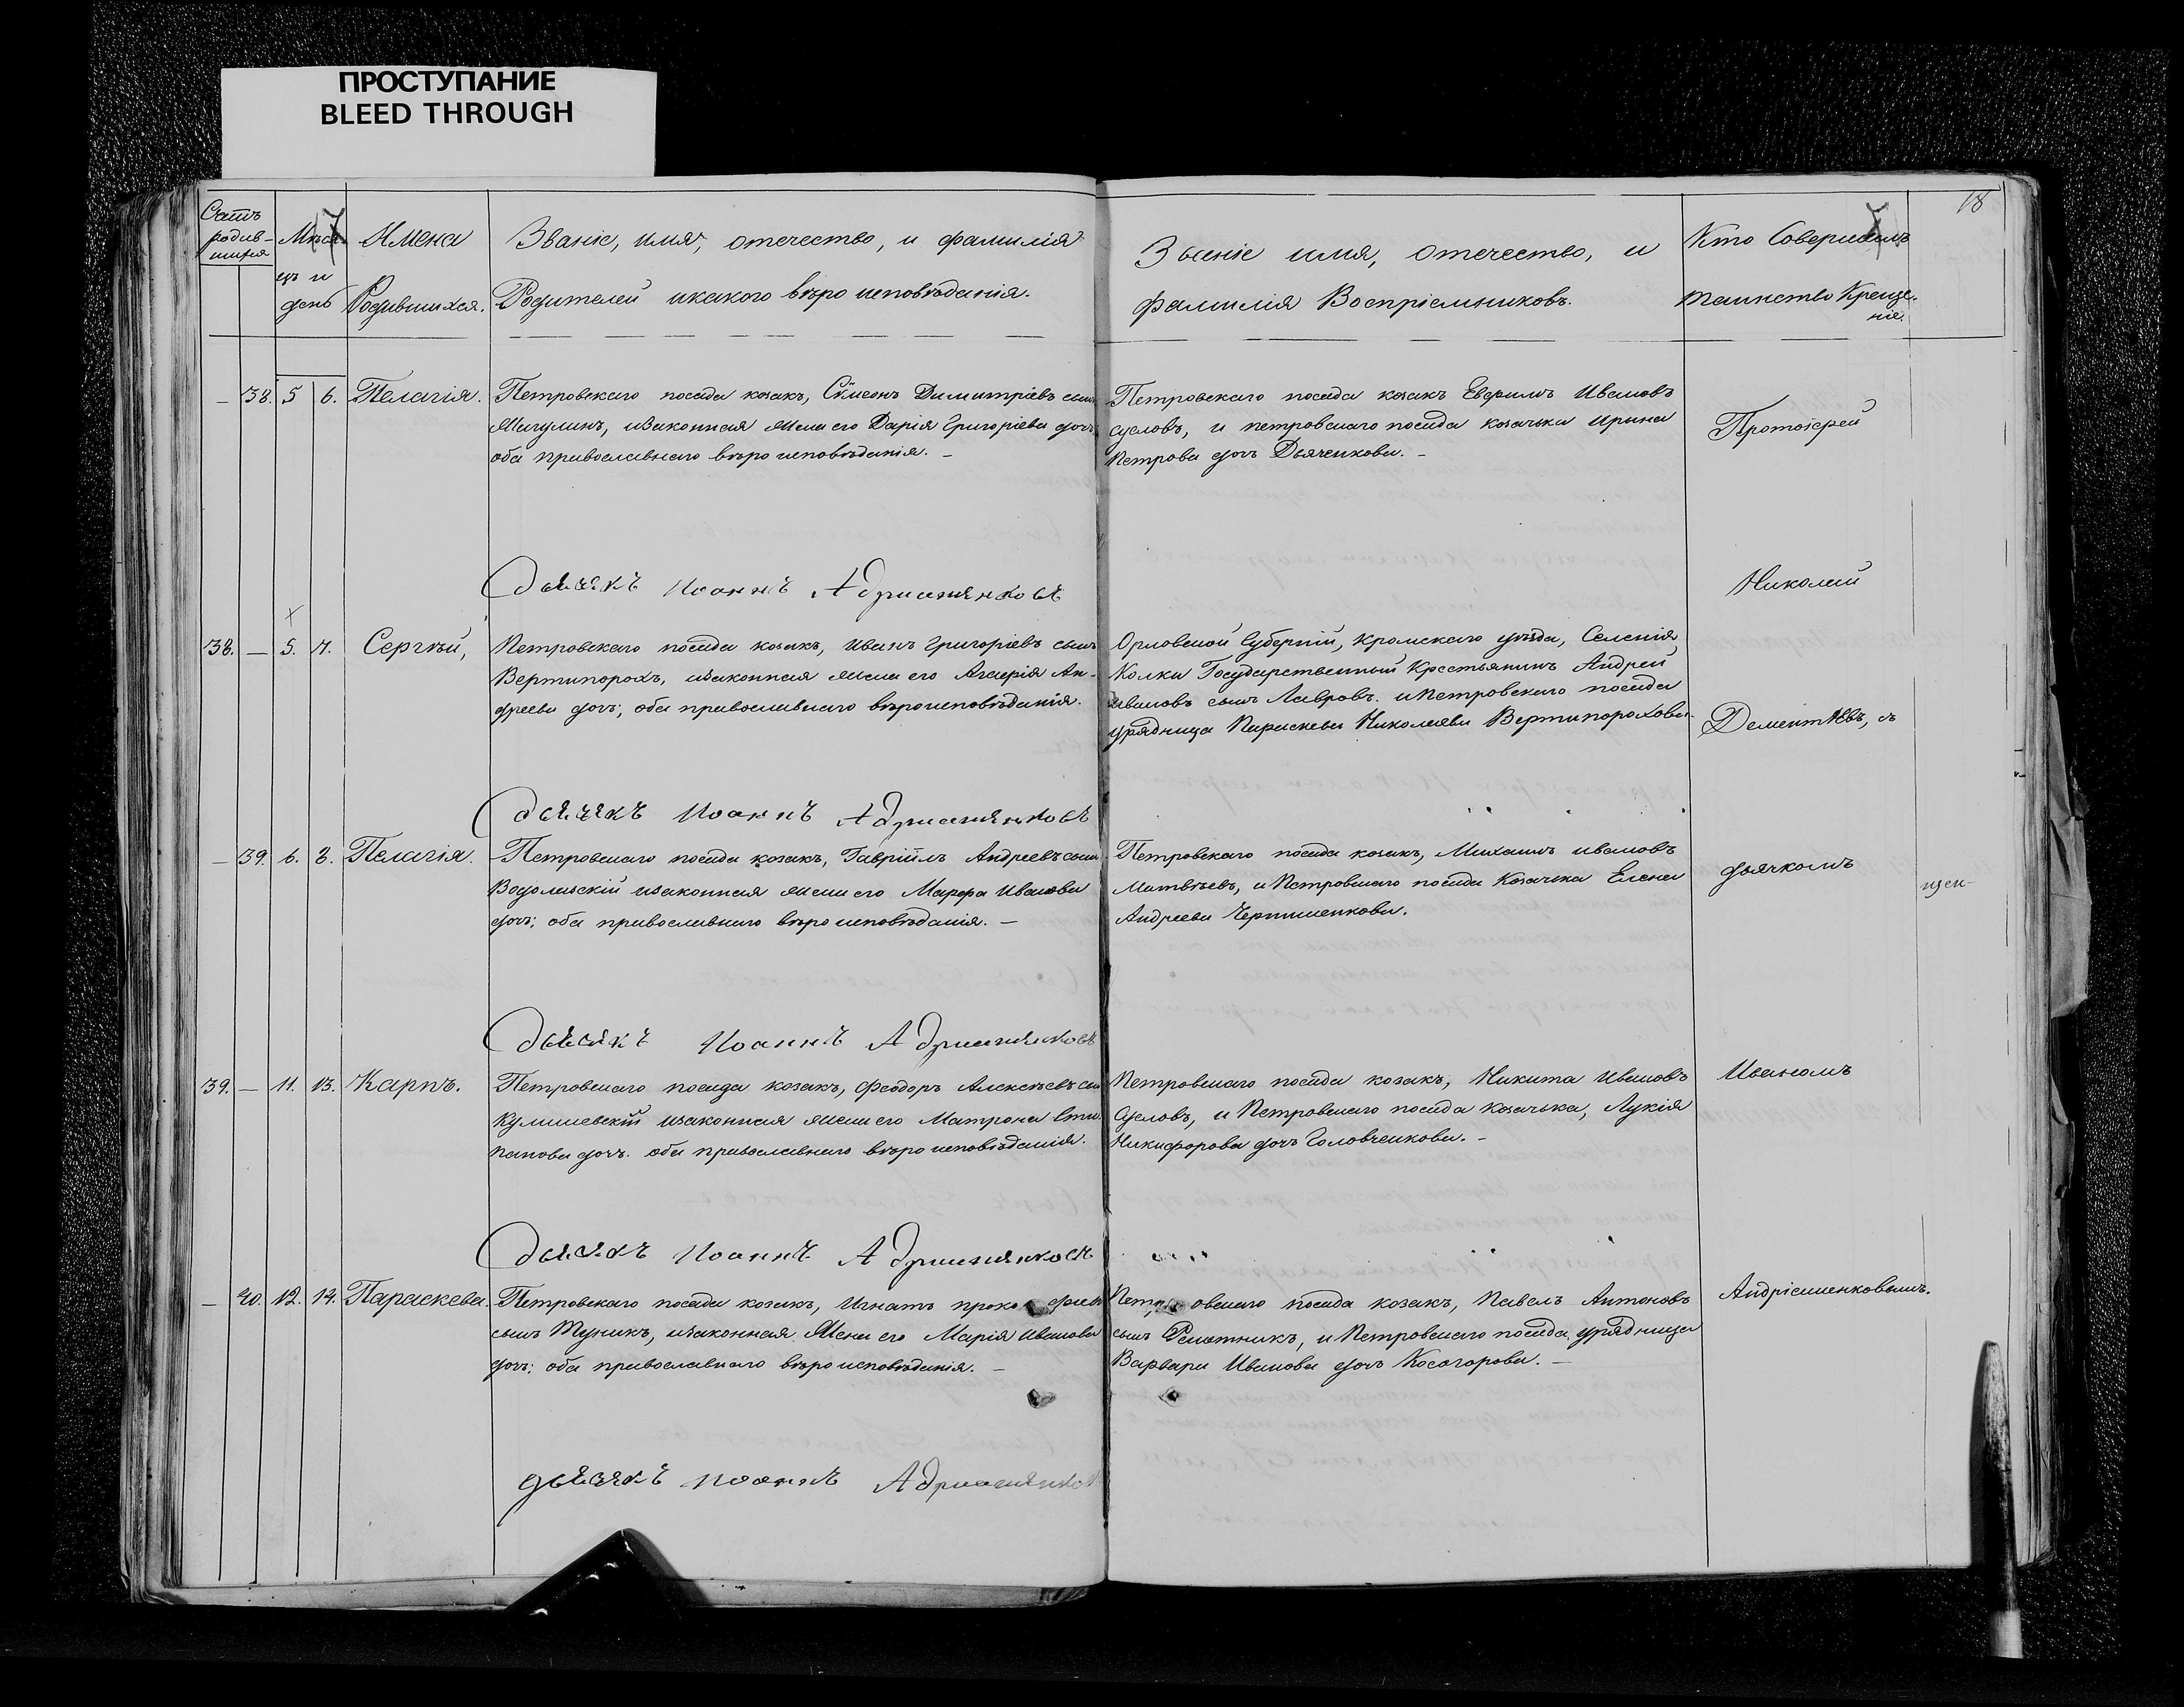 ПРОСТУПАНИЕ
BLEED THROUGH
18
Счетъ родив-шихся
Мѣся-цъ и день
Имена Родившихся.
Званіе, имя, отечество, и фамилія
Родителей и какого вѣро исповѣданія.
Званіе имя, отечество, и
фамилія Воспріемниковъ.
Кто Совершилъ
таинство Креще-
нія.
— 38. 5 6. Пелагія.
Петровскаго посада козакъ, Сѵмеонъ Димитріевъ сынъ
Мигулинъ, изаконная жена его Дарія Григоріева дочь
оба православнаго вѣро исповѣданія. —
Петровскаго посада козакъ Евфимъ Ивановъ
Сусловъ, и петровскаго посада козачька Ирина
Петрова дочь Дьяченкова. —
Протоіерей
дьячекъ Иоаннъ Адрианянковъ
Николай
38. — 5. 7. Сергѣй,
Петровскаго посада козакъ, Иванъ Григоріевъ сынъ
Вертипорохъ, изаконная жена его Агафія Ан-
дреева дочь; оба православнаго вѣроисповѣданія.
Орловской Губерніи, Кромскаго уѣзда, Селенія
Колки Государственный Крестьянинъ Андрей
Ивановъ сынъ Лавровъ. и Петровскаго посада
урядница Параскева Николаева Вертипорохова-
Дементьевъ, съ
дьячекъ Иоаннъ Адрианянковъ
— 39. 6. 8. Пелагія.
Петровскаго посада козакъ, Гавріилъ Андреевъ сынъ
Водолазскій изаконная жена его Марфа Иванова
дочь; оба православнаго вѣро исповѣданія. —
Петровскаго посада козакъ, Михаилъ Ивановъ
Матвѣевъ, и Петровскаго посада Козачька Елена
Андреева Чернышенкова.
дьячкомъ
щен-
дьячекъ Иоаннъ Адрианянковъ
39. — 11. 13. Карпъ.
Петровскаго посада козакъ, Феодоръ Алексѣевъ сынъ
Кулишевскій изаконная жена его Матрона Сти
панова дочь. оба православнаго вѣро исповѣданія.
Петровскаго посада козакъ, Никита Ивановъ
Сусловъ, и Петровскаго посада козачька, Лукія
Никифорова дочь Головченкова. —
Иваномъ
дьячекъ Иоаннъ Адрианянковъ
— 40. 12. 14. Параскева.
Петровскаго посада козакъ, Игнатъ прокофіевъ
сынъ Тупикъ, изаконная Жена его Марія Иванова
дочь; оба православнаго вѣро исповѣданія. —
Петровскаго посада козакъ, Павелъ Антоновъ
сынъ Решотникъ, и Петровскаго посада урядница
Варвара Иванова дочь Косогорова. —
Андріяшенковымъ.
дьячекъ Иоаннъ Адрианянков